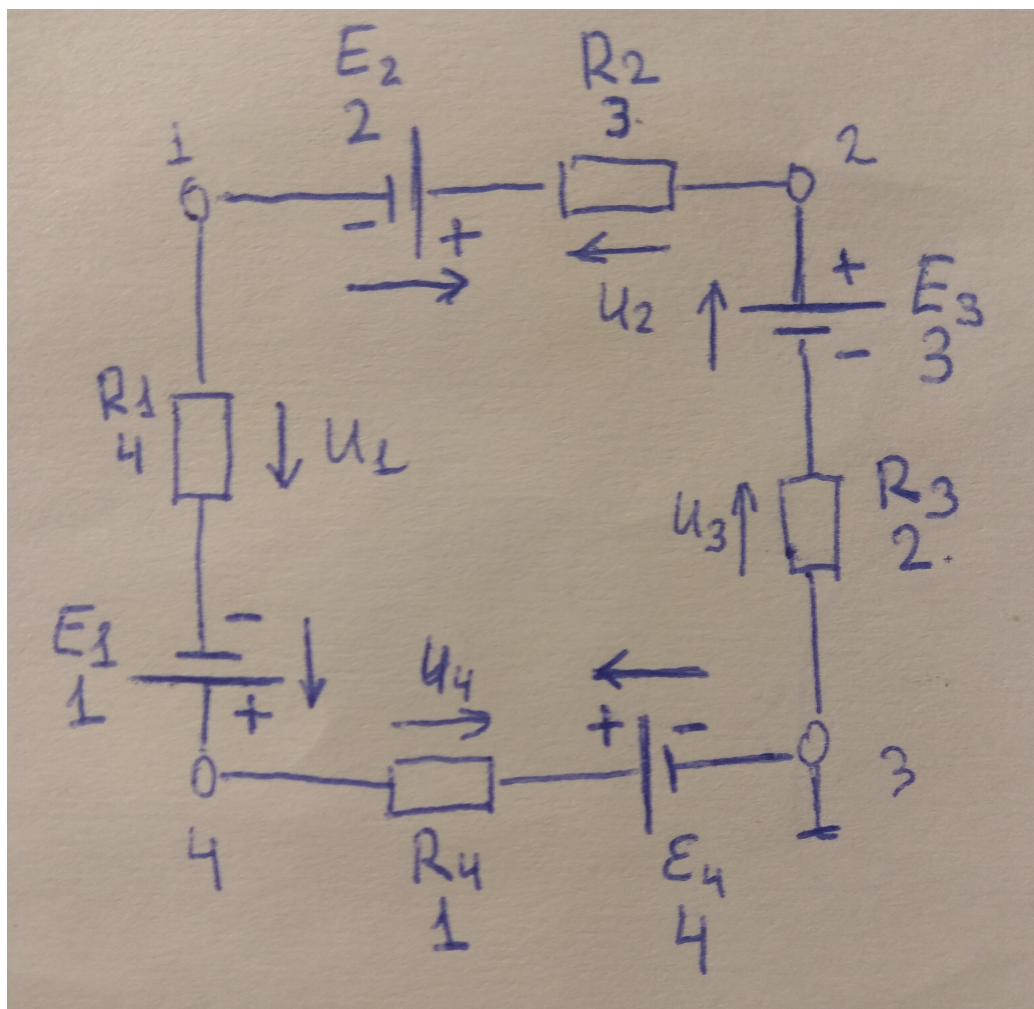 E2
2
R2
3.
1
2
- +
U2
+
E3
3
-
R1
4
U1
U3
R3
2.
E1
1
-
+
U4
+ -
3
4
R4
1
E4
4